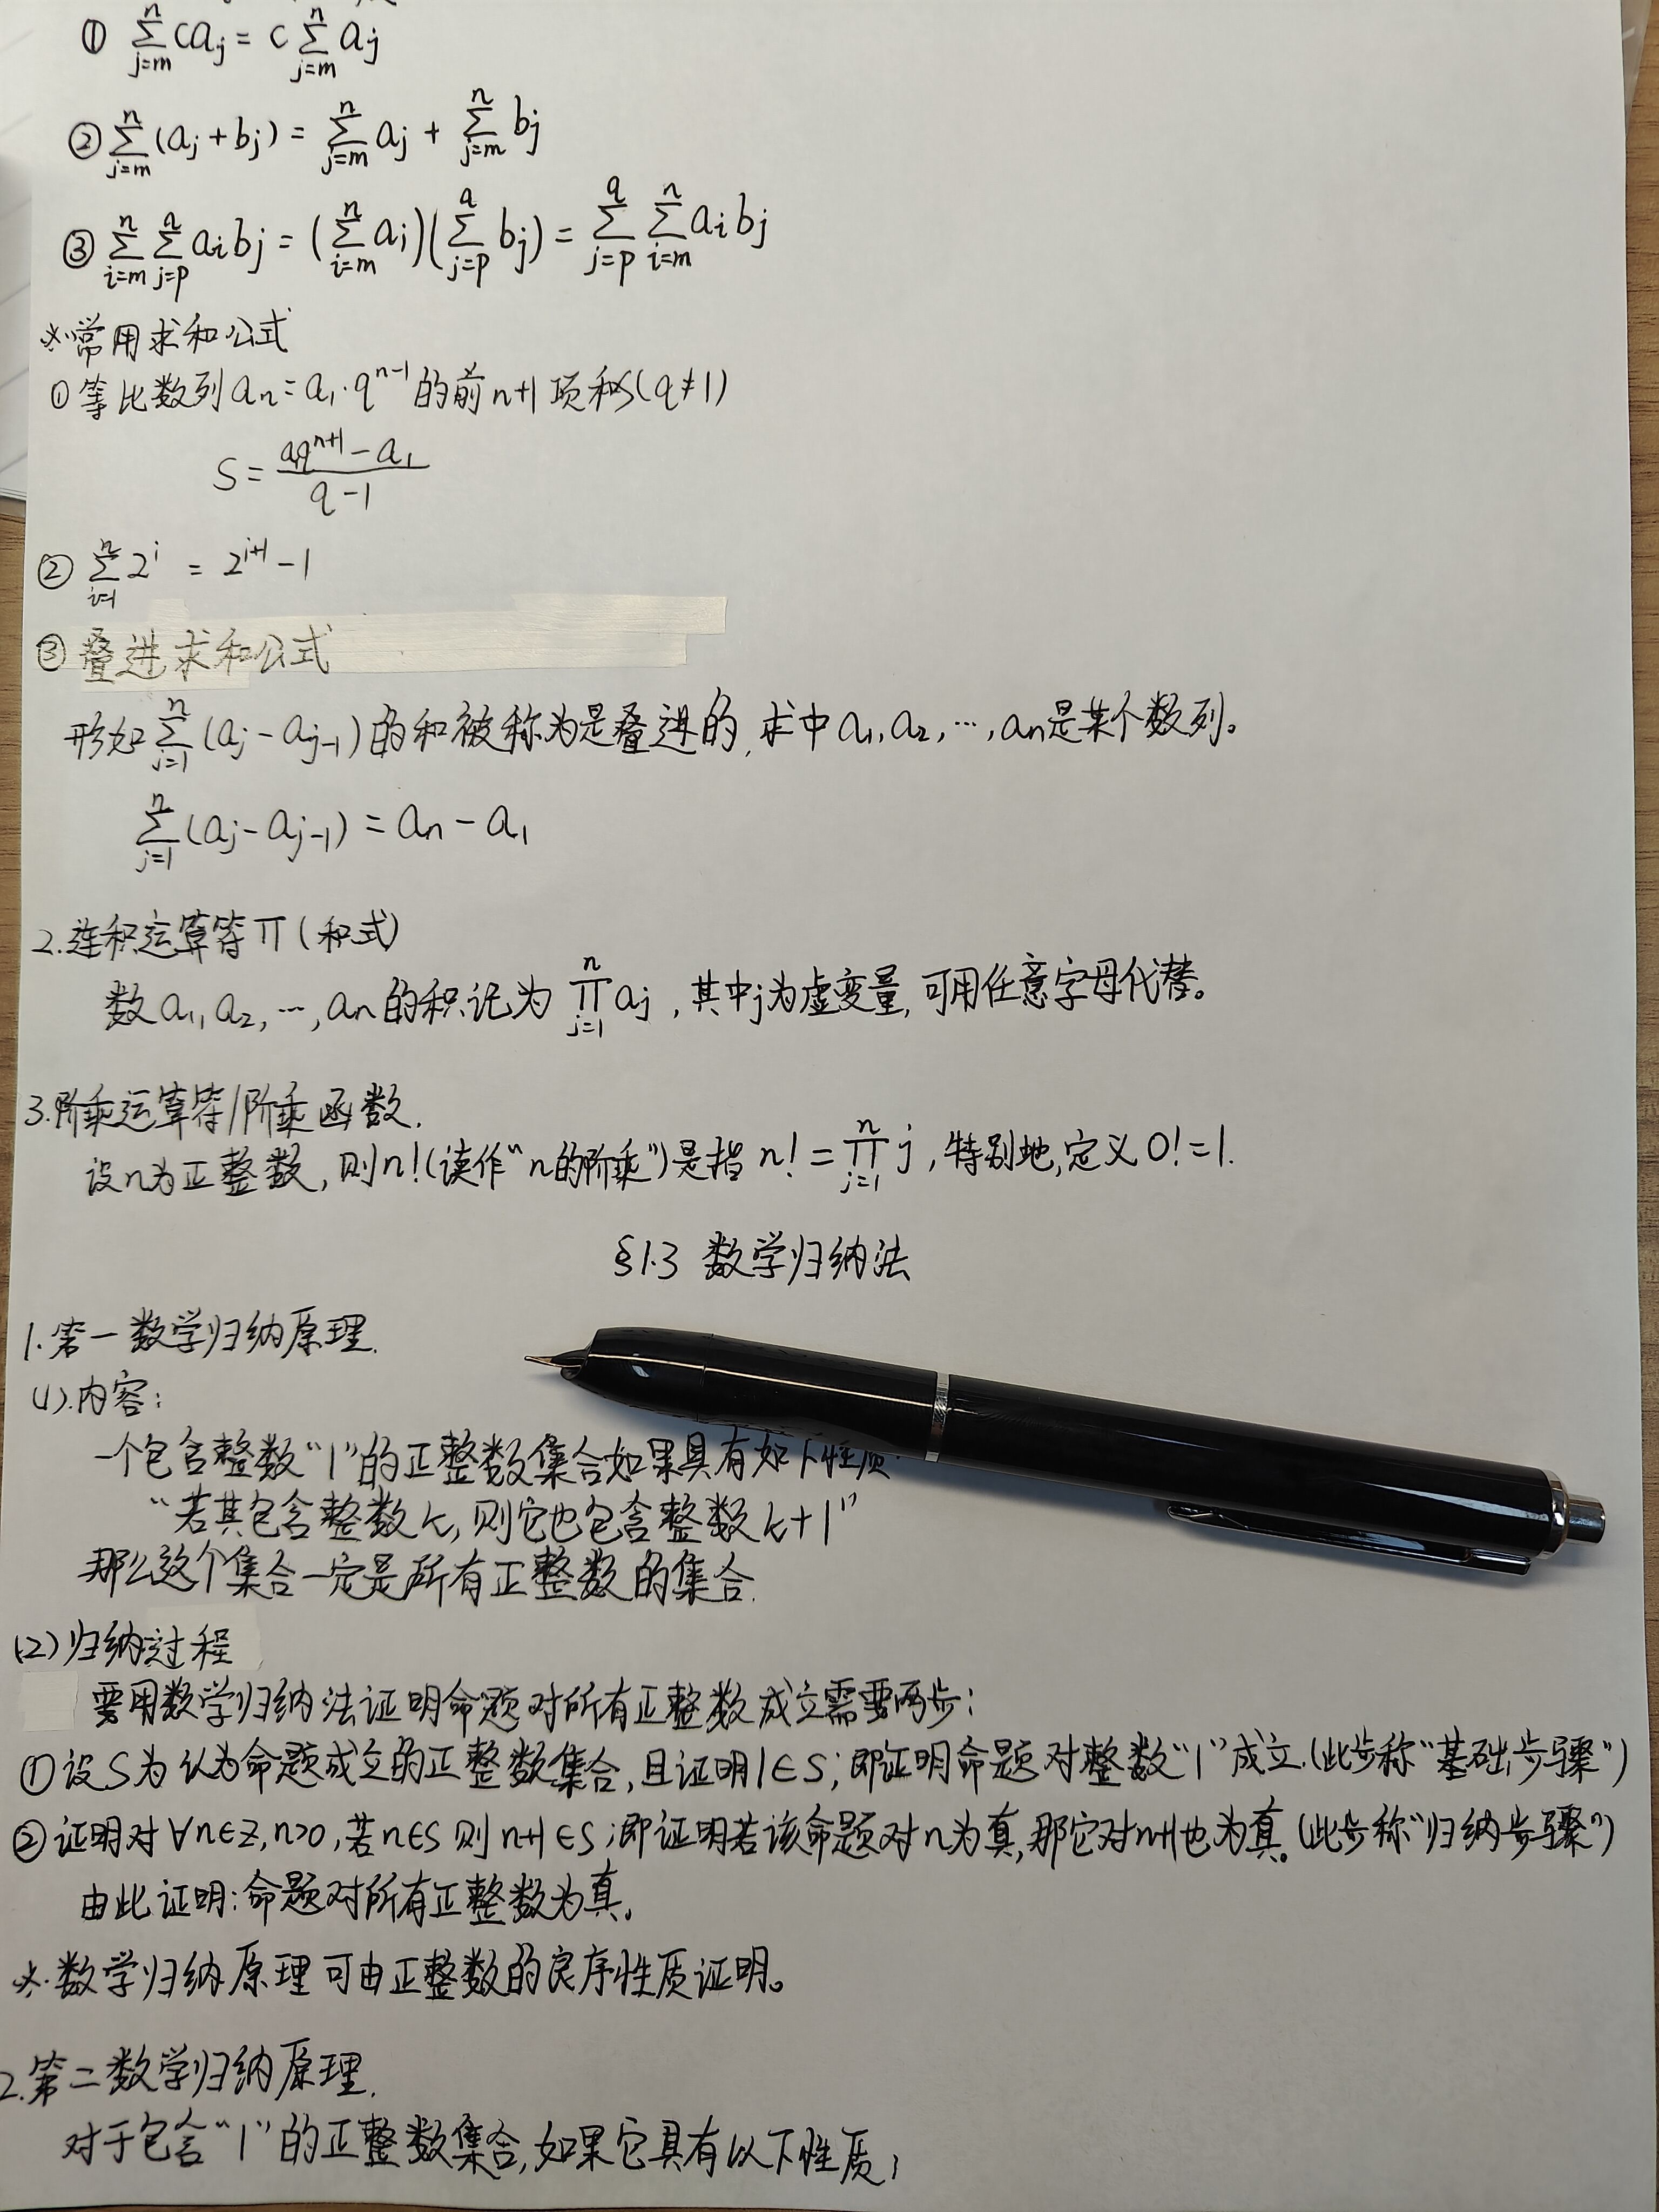 ① ∑_{j=m}^{n} ca_j = c ∑_{j=m}^{n} a_j
② ∑_{j=m}^{n} (a_j + b_j) = ∑_{j=m}^{n} a_j + ∑_{j=m}^{n} b_j
③ ∑_{i=m}^{n} ∑_{j=p}^{q} a_i b_j = (∑_{i=m}^{n} a_i)(∑_{j=p}^{q} b_j) = ∑_{j=p}^{q} ∑_{i=m}^{n} a_i b_j
※常用求和公式
①等比数列 a_n = a_1·q^{n-1} 的前n+1项和S(q≠1)
S = (a_1q^{n+1} - a_1)/(q-1)
② ∑_{i=1}^{n} 2^i = 2^{i+1} - 1
③ 叠进求和公式
形如 ∑_{j=1}^{n} (a_j - a_{j-1}) 的和被称为是叠进的, 求中 a_1, a_2, …, a_n是某个数列。
∑_{j=1}^{n} (a_j - a_{j-1}) = a_n - a_1
2.连积运算符 ∏ (积式)
数 a_1, a_2, …, a_n 的积记为 ∏_{j=1}^{n} a_j , 其中j为虚变量, 可用任意字母代替。
3.阶乘运算符/阶乘函数.
设n为正整数, 则n!(读作“n的阶乘”)是指 n! = ∏_{j=1}^{n} j , 特别地,定义 0! = 1.
§1.3 数学归纳法
1.第一数学归纳原理.
(1).内容:
一个包含整数“1”的正整数集合如果具有如下性质
“若其包含整数k, 则它也包含整数k+1”
那么这个集合一定是所有正整数的集合.
(2)归纳过程
要用数学归纳法证明命题对所有正整数成立需要两步:
①设S为认为命题成立的正整数集合, 且证明1∈S; 即证明命题对整数“1”成立.(此步称“基础步骤”)
②证明对∀n∈Z, n>0, 若n∈S 则 n+1∈S ;即证明若该命题对n为真, 那它对n+1也为真。(此步称“归纳步骤”)
由此证明:命题对所有正整数为真。
※.数学归纳原理可由正整数的良序性质证明。
2.第二数学归纳原理.
对于包含“1”的正整数集合, 如果它具有以下性质;